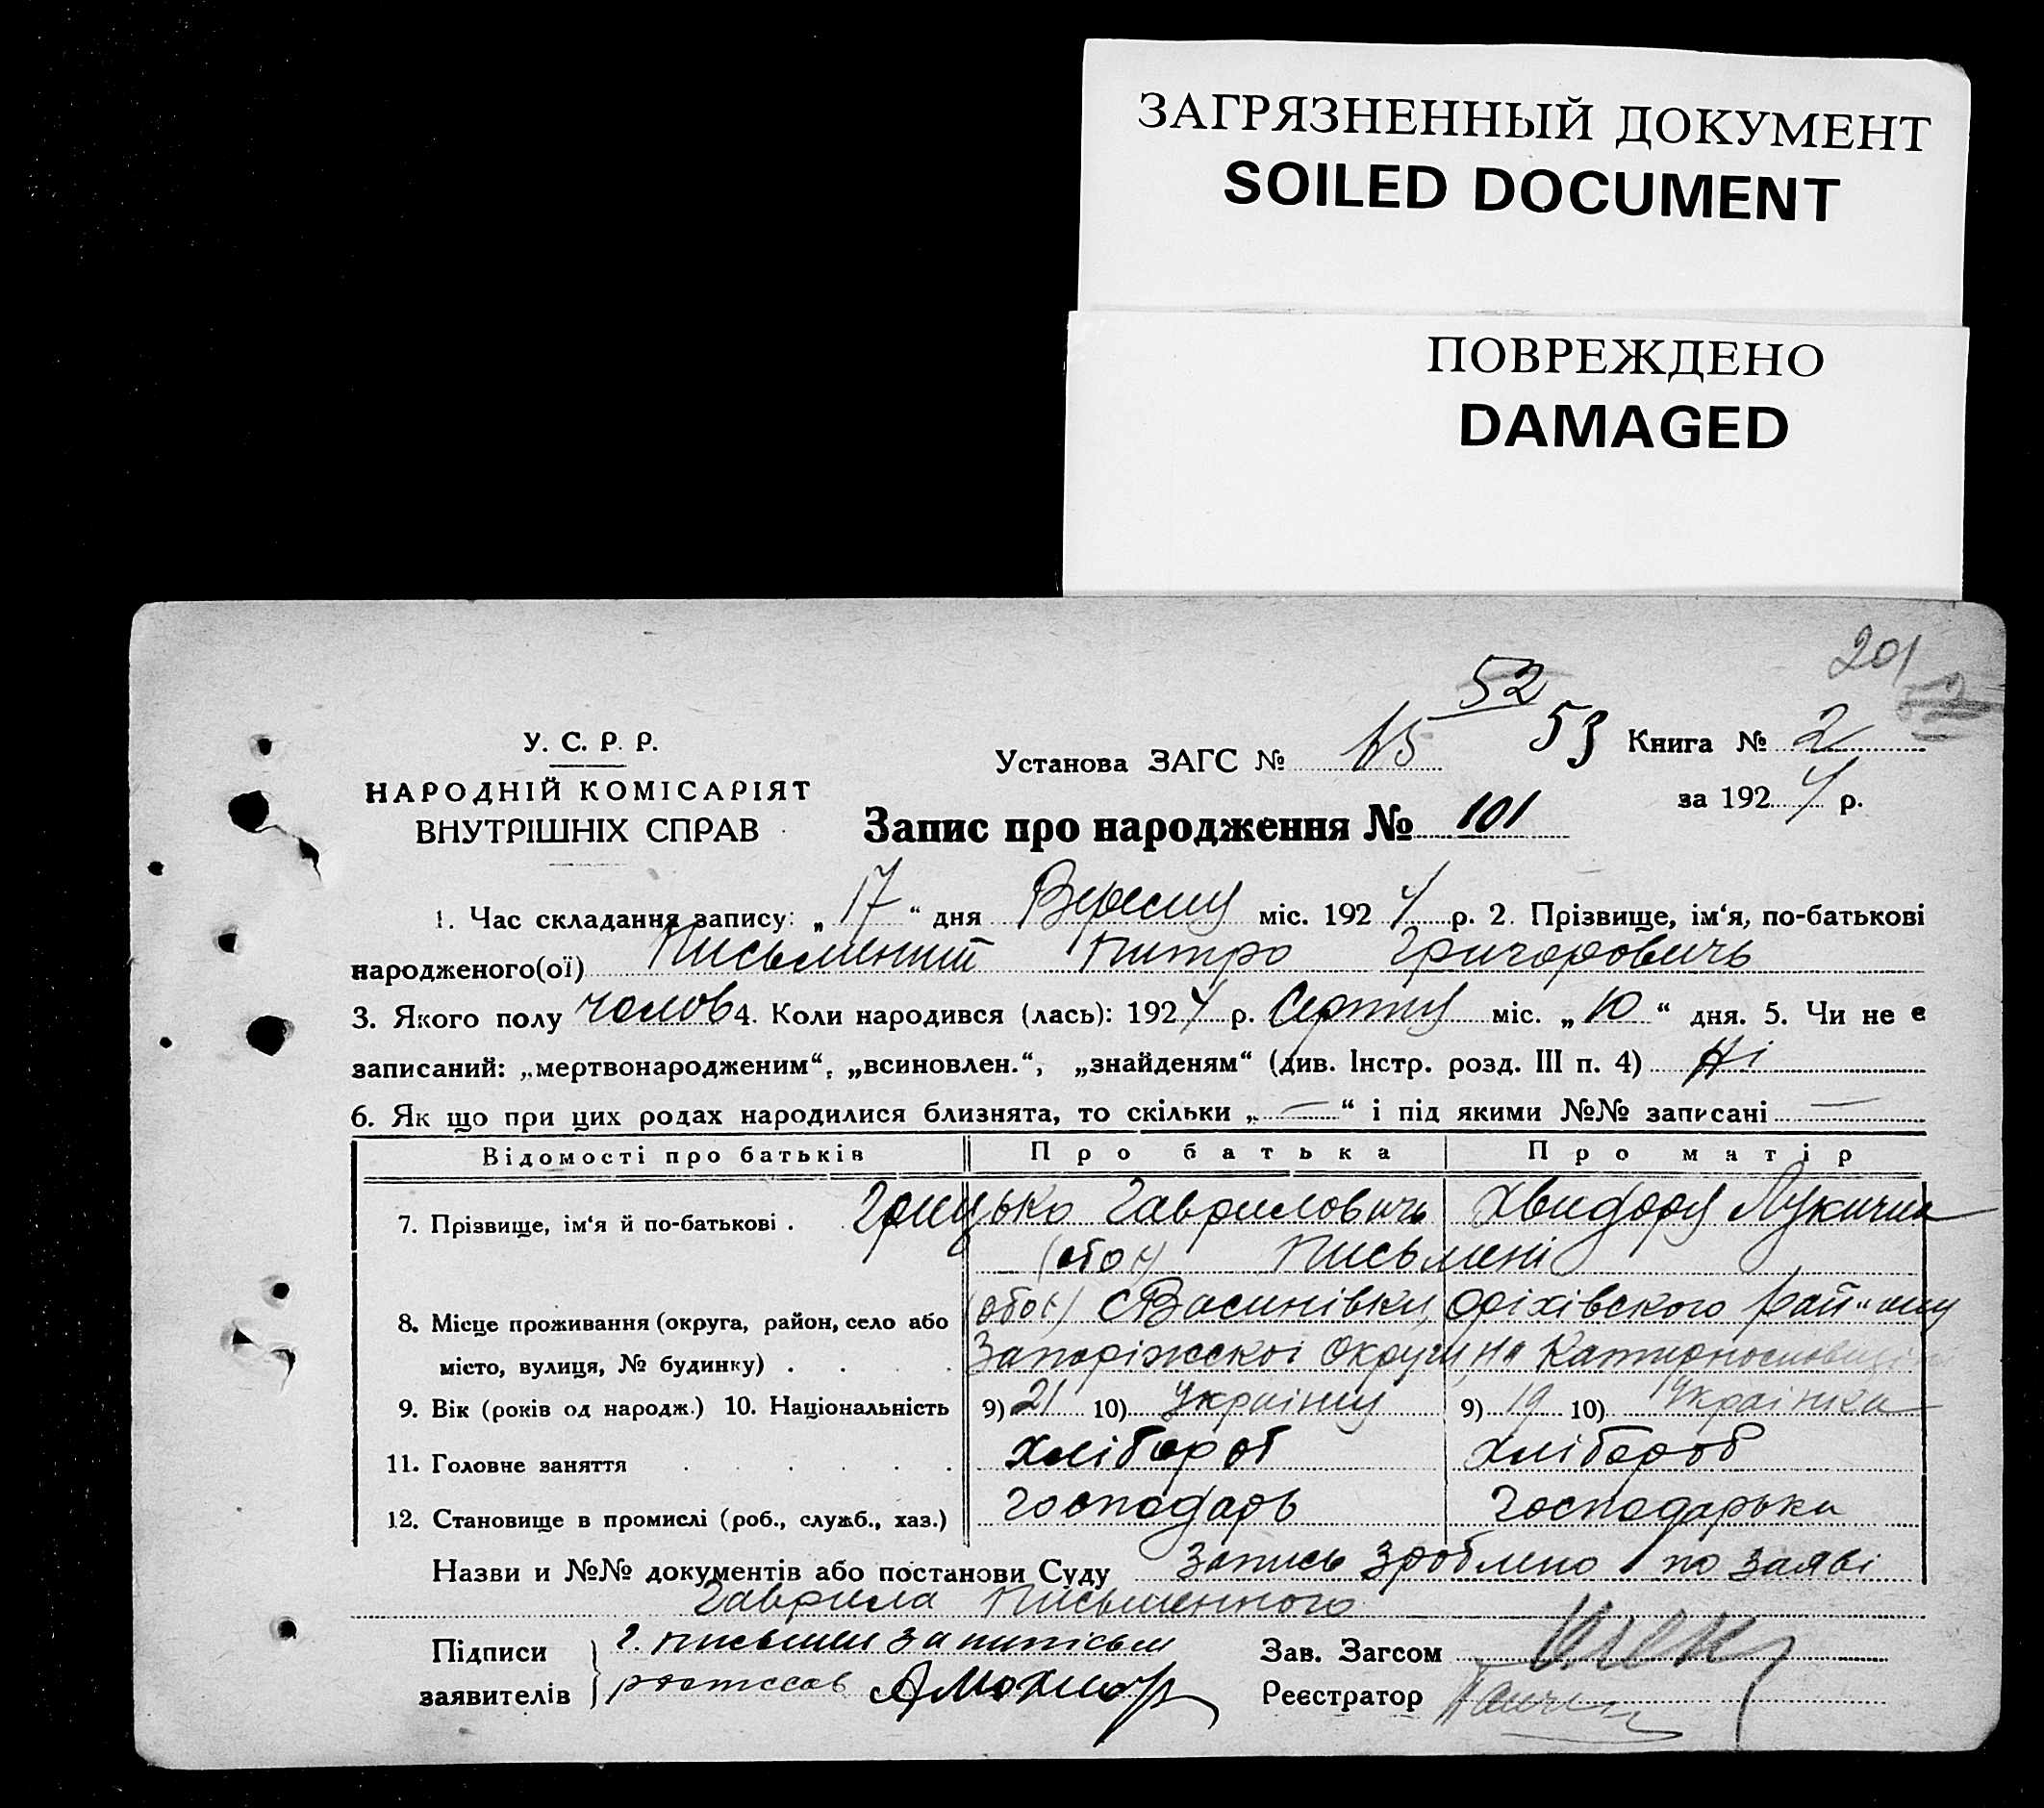 ЗАГРЯЗНЕННЫЙ ДОКУМЕНТ
SOILED DOCUMENT
ПОВРЕЖДЕНО
DAMAGED
201
52
У. С. Р. Р.
НАРОДНІЙ КОМІСАРІЯТ
ВНУТРІШНІХ СПРАВ
Установа ЗАГС № 53 Книга № 2
за 1924 р.
Запис про народження № 101
1. Час складання запису: „17“ дня Вересня міс. 1924 р. 2. Прізвище, ім‘я, по-батькові
народженого(ої) Письменний Митро Григоровичь
3. Якого полу чолов 4. Коли народився (лась): 1924 р. Серпня міс. „10“ дня. 5. Чи не є
записаний: „мертвонародженим“, „всиновлен.“, „знайденям“ (див. Інстр. розд. III п. 4) Ні
6. Як що при цих родах народилися близнята, то скільки „—“ і під якими №№ записані —
Відомості про батьків Про батька Про матір
7. Прізвище, ім‘я й по-батькові . Грицько Гавриловичь Хвидоря Лукична
(обоє) Письмені
8. Місце проживання (округа, район, село або (обоє) Оріхівского
місто, вулиця, № будинку) . . . . Запоріжскоі Округи на
9. Вік (років од народж.) 10. Національність 9) 21 10) Украінец 9) 19 10) Украінка
11. Головне заняття . . . . . . хлібороб хлібороб
12. Становище в промислі (роб., служб., хаз.) господарь господарька
Назви и №№ документів або постанови Суду Запись зроблено по заяві
Гаврила Письменного
Підписи
заявителів
Зав. Загсом
Реєстратор